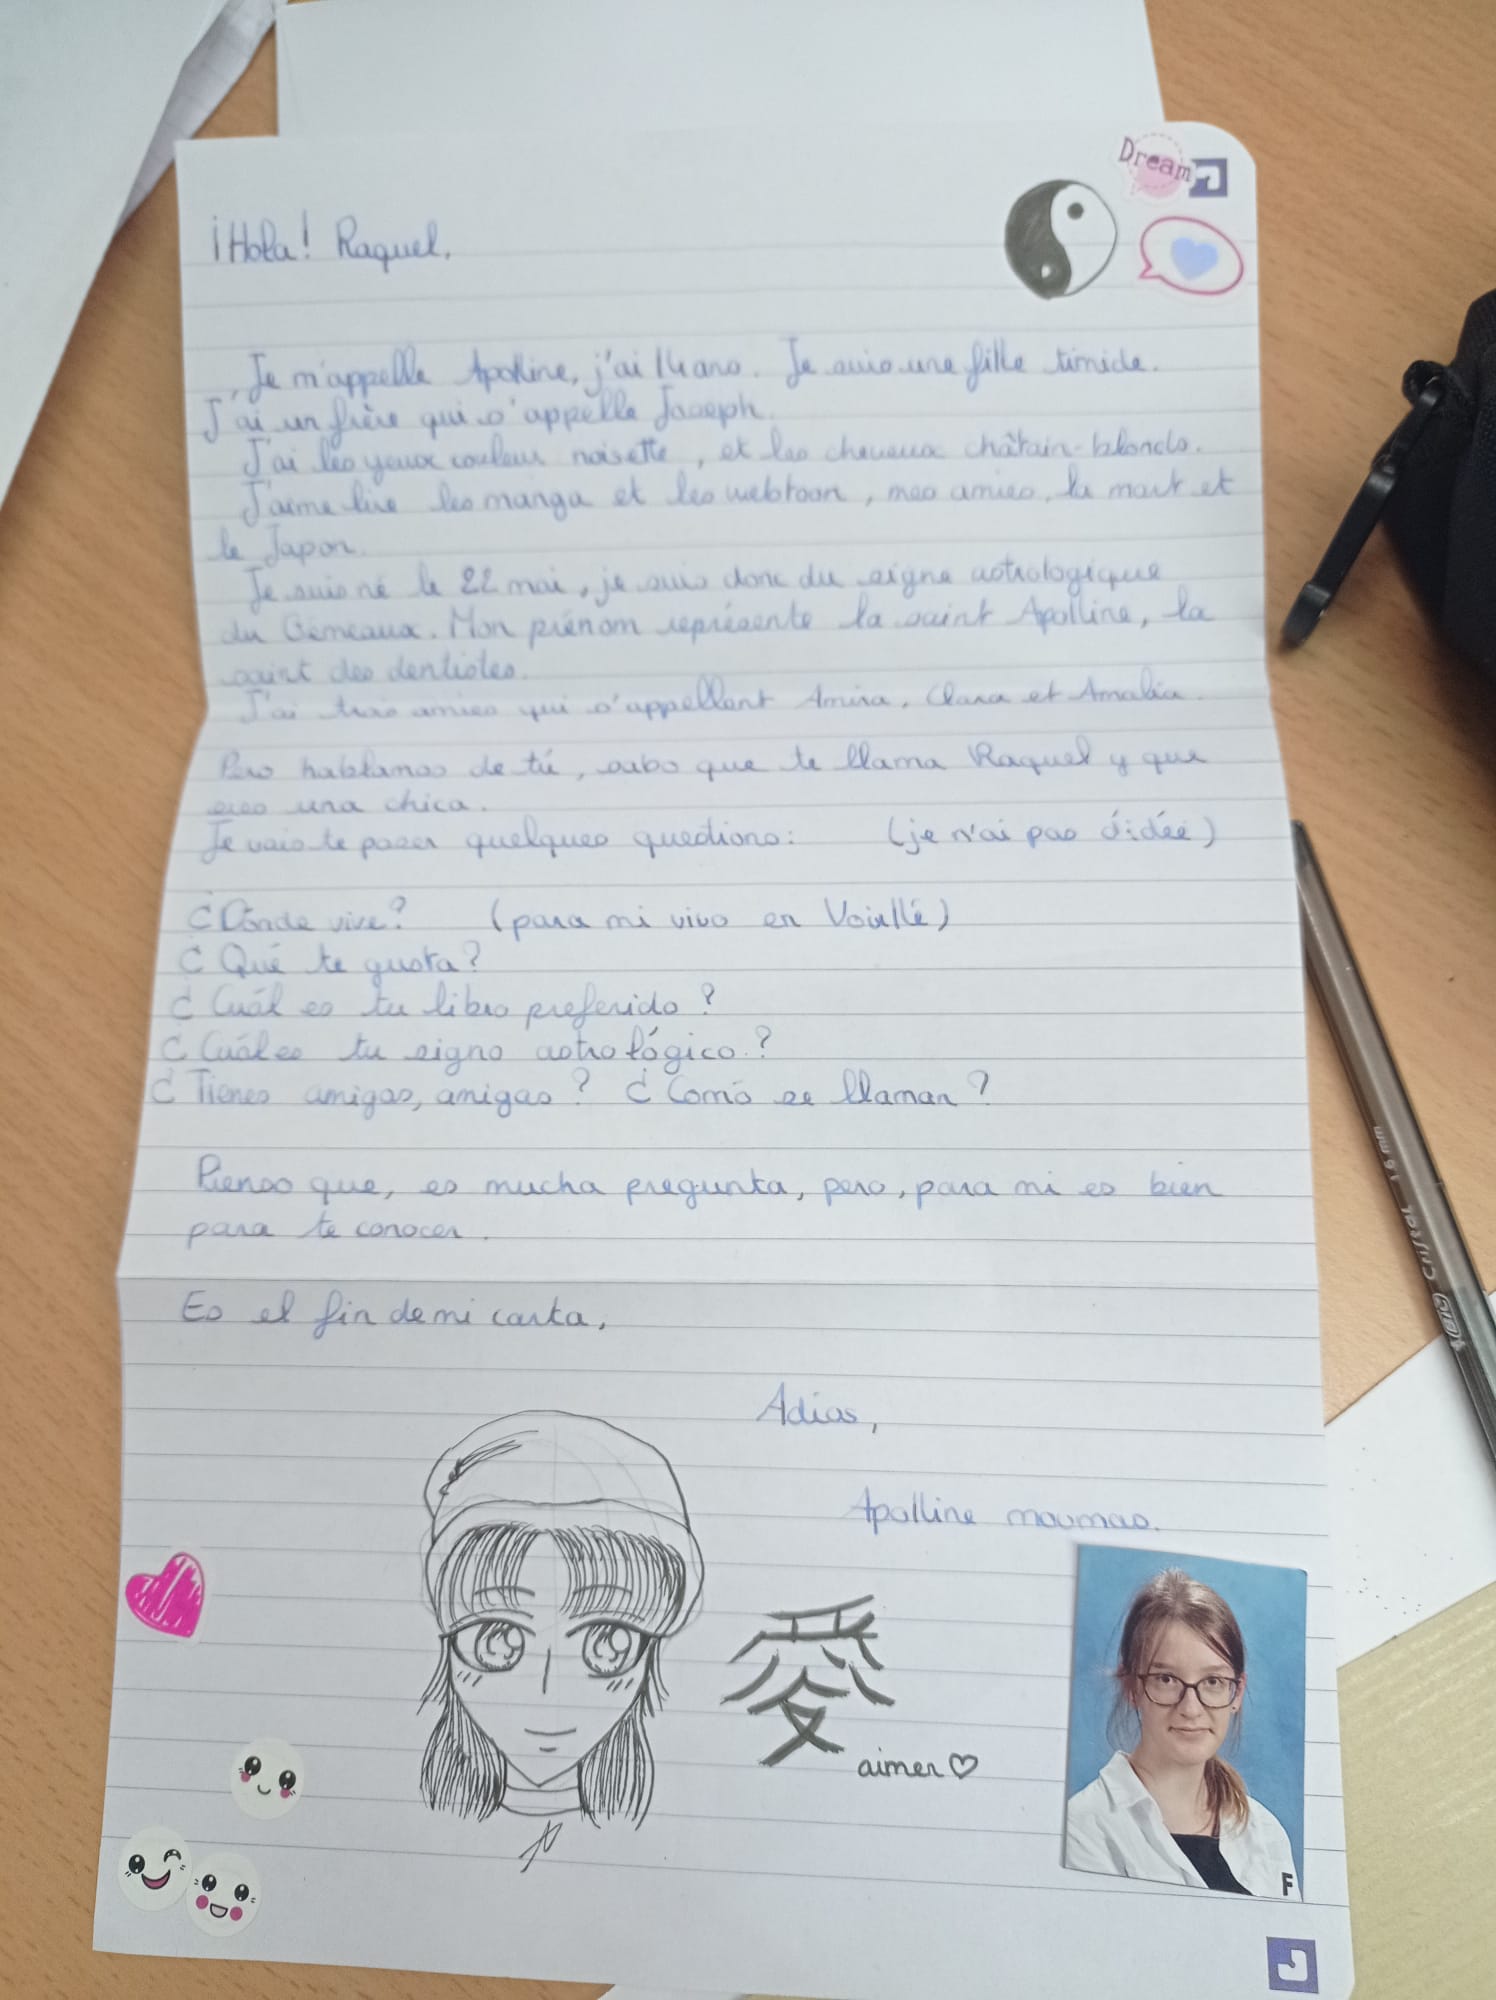 Dream
¡Hola! Raquel,
Je m'appelle Apolline, j'ai 14 ans. Je suis une fille timide.
J'ai un frère qui s'appelle Joseph.
J'ai les yeux couleur noisette, et les cheveux châtain-blonds.
J'aime lire les manga et les webtoon, mes amies, la mort et
le Japon.
Je suis né le 22 mai, je suis donc du signe astrologique
du Gémeaux. Mon prénom représente la saint Apolline, la
saint des dentistes.
J'ai trois amies qui s'appellent Amira, Clara et Amalia.
Pero hablamos de tú, sabo que te llama Raquel y que
eres una chica.
Je vais te poser quelques questions: (je n'ai pas d'idée)
¿Dónde vive? (para mi vivo en Vouillé)
¿Qué te gusta?
¿Cuál es tu libro preferido?
¿Cuál es tu signo astrológico?
¿Tienes amigos, amigas? ¿Comó se llaman?
Pienso que, es mucha pregunta, pero, para mi es bien
para te conocer.
Es el fin de mi carta,
Adios,
Apolline
愛
aimer
F